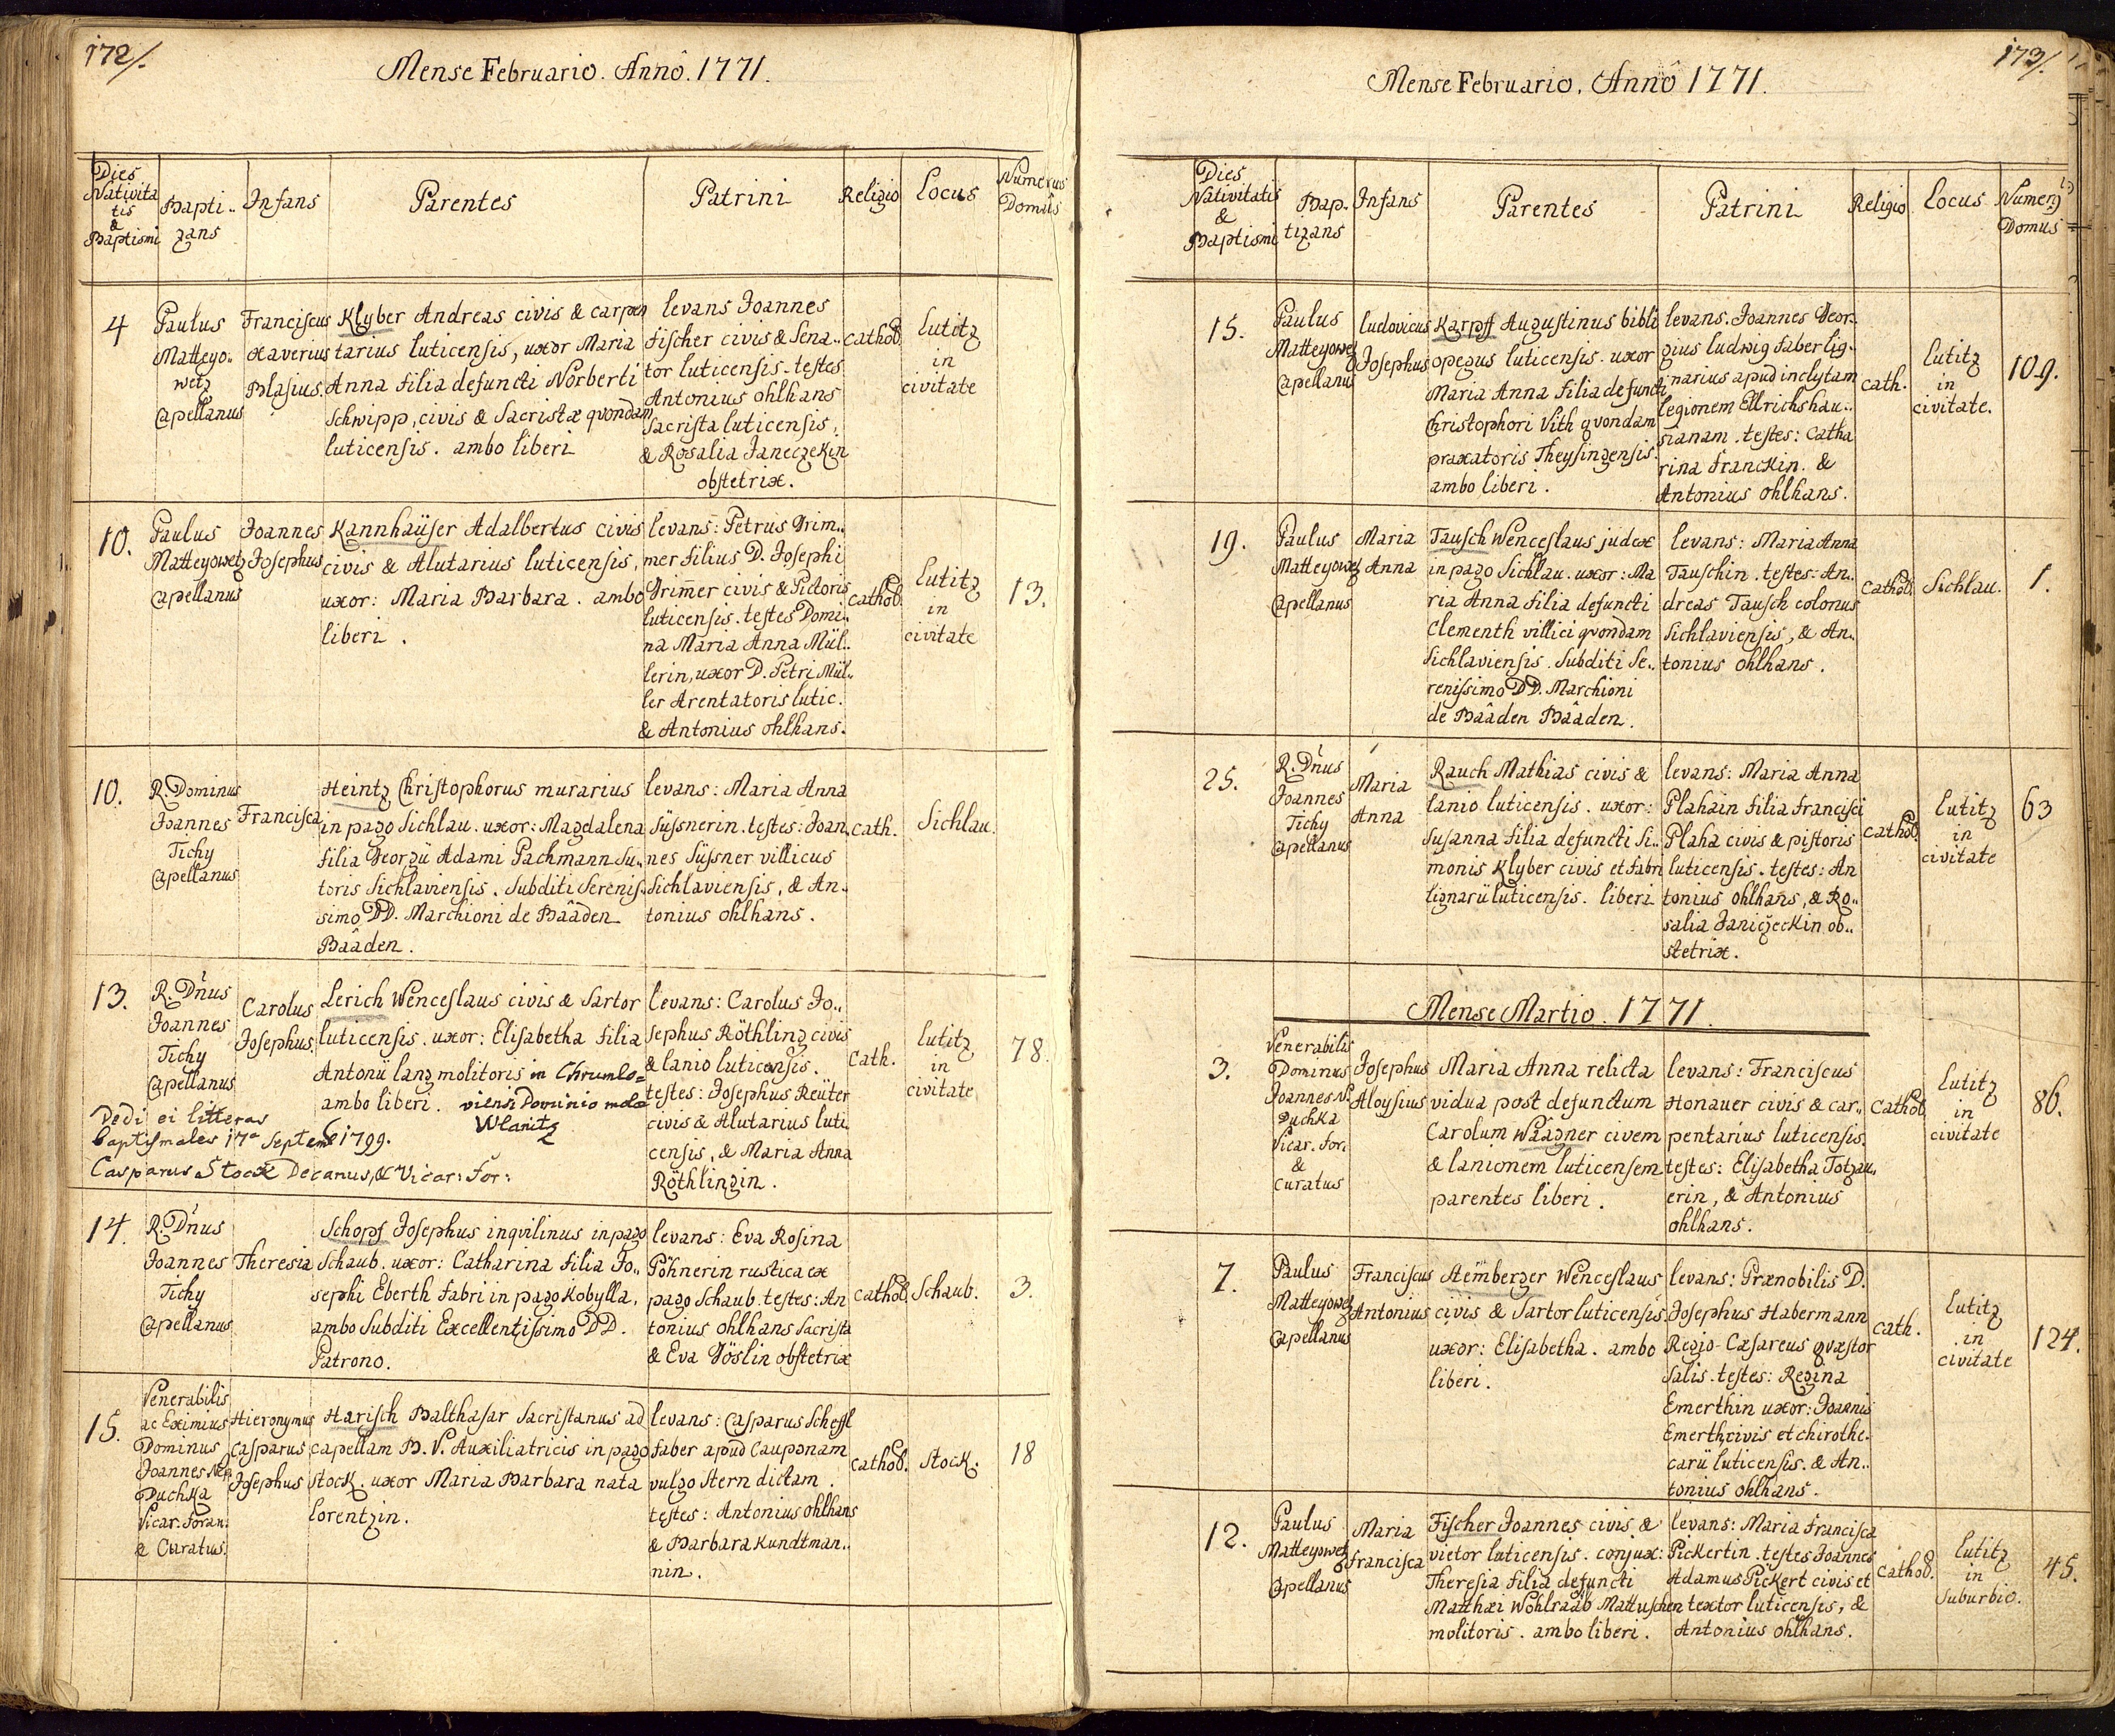 172/.
Mense Februario. Annô. 1771.
Dies
Nativita
tis
&
Baptismi
Bapti..
zans
Infans
Parentes
Patrini
Religio
Locus
Numerus
Domûs
4
Paulus
Matteyo..
wetz
Capellanus
Franciscus
Xaverius
Blasius.
Klyber Andreas civis & carpen
tarius luticensis, uxor Maria
Anna filia defuncti Norberti
Schwipp, civis & Sacristæ qvondam
luticensis. ambo liberi
levans Joannes
Fischer civis & Sena..
tor luticensis. testes
Antonius ohlhans
Sacrista luticensis,
& Rosalia Janeczekin
obstetrix.
Cathol.
Lutitz
in
civitate
10.
Paulus
Matteyowetz
Capellanus
Joannes
Josephus
Kannhaüser Adalbertus civis
civis & Alutarius luticensis,
uxor: Maria Barbara. ambo
liberi.
levans: Petrus Grim..
mer filius D. Josephi
Grim̄er civis & Pictoris
luticensis. testes Domi..
na Maria Anna Mül..
lerin, uxor D. Petri Mül..
ler Arentatoris lutic.
& Antonius ohlhans.
Cathol.
Lutitz
in
civitate
13.
10.
R. Dominus
Joannes
Tichy
Capellanus
Francisca
Heintz Christophorus murarius
in pago Sichlau. uxor: Magdalena
filia Georgii Adami Pachmann Su..
toris Sichlaviensis. Subditi Serenis..
simo DD. Marchioni de Baâden
Baâden.
levans: Maria Anna
Süssnerin. testes: Joan..
nes Süssner villicus
Sichlaviensis, & An..
tonius ohlhans.
Cath.
Sichlau.
13.
R. Dn̄us
Joannes
Tichy
Capellanus
Carolus
Josephus.
Lerich Wenceslaus civis & Sartor
luticensis. uxor: Elisabetha filia
Antonii lang molitoris in Chrumlo=
ambo liberi. viensi Dominio
Wlanitz
Dedi ei litteras
baptismales 17a Septemb 1799.
Casparus Stock Decanus, & Vicar: For:
levans: Carolus Jo..
sephus Röthling civis
& lanio luticensis.
testes: Josephus Reüter
civis & Alutarius luti
censis, & Maria Anna
Röthlingin.
Cath.
lutitz
in
civitate
78.
14.
R. Dn̄us
Joannes
Tichy
Capellanus
Theresia
Schops Josephus inqvilinus in pago
Schaub. uxor: Catharina filia Jo..
sephi Eberth fabri in pago Kobylla,
ambo Subditi Excellentissimo DD.
Patrono.
levans: Eva Rosina
Pöhnerin rustica ex
pago Schaub. testes: An
tonius ohlhans Sacrista
& Eva Göslin obstetrix
Cathol.
Schaub.
3.
15.
Venerabilis
ac Eximius
Dominus
Joannes Nep.
Duchka
Vicar. Foran.
& Curatus.
Hieronymus
Casparus
Josephus
Harisch Balthasar Sacristanus ad
capellam B. V. Auxiliatricis in pago
Stock. uxor Maria Barbara nata
lorentzin.
levans: Casparus Scheffl
faber apud Cauponam
vulgo Stern dictam.
testes: Antonius ohlhans
& Barbara Kundtman..
nin.
Cathol.
Stock.
18
173/.
Mense Februario, Annô 1771.
Dies
Nativitatis
&
Baptismi
Bap..
tizans
Infans
Parentes
Patrini
Religio
Locus
Numerq
Domus
15.
Paulus
Matteyowetz
Capellanus
Ludovicus
Josephus
Karpff Augustinus bibli
opegus luticensis. uxor
Maria Anna filia defuncti
Christophori Vith qvondam
praxatoris Theysingensis.
ambo liberi.
levans: Joannes Geor..
gius Ludwig faber lig..
narius apud inclytam
legionem Ellrichshau..
sianam. testes: Catha
rina Franckin. &
Antonius ohlhans.
Cath.
lutitz
in
civitate.
109.
19.
Paulus
Matteyowetz
Capellanus
Maria
Anna
Tausch Wenceslaus judex
in pago Sichlau. uxor: Ma
ria Anna filia defuncti
Clementh villici qvondam
Sichlaviensis. Subditi Se..
renissimo DD. Marchioni
de Baâden Baâden.
levans: Maria Anna
Tauschin. testes: An..
dreas Tausch colonus
Sichlaviensis, & An..
tonius ohlhans.
Cathol.
Sichlau.
1.
25.
R. Dn̄us
Joannes
Tichy
Capellanus
Maria
Anna
Rauch Mathias civis &
lanio luticensis. uxor:
Susanna filia defuncti Si..
monis Klyber civis et fabri
lignarii luticensis. liberi
levans: Maria Anna
Plahain filia Francisci
Plaha civis & pistoris
luticensis. testes: An
tonius ohlhans, & Ro..
salia Janiczeckin ob..
stetrix.
Cathol.
lutitz
in
civitate
63
Mense Martio. 1771.
3.
Venerabilis
Dominus
Joannes N.
Duchka
Vicar. For.
&
Curatus
Josephus
Aloysius
Maria Anna relicta
vidua post defunctum
Carolum Waagner civem
& lanionem luticensem
parentes liberi.
levans: Franciscus
Honauer civis & car..
pentarius luticensis.
testes: Elisabetha Totzau..
erin, & Antonius
ohlhans.
Cathol.
Lutitz
in
civitate
86.
7.
Paulus
Matteyowetz
Capellanus
Franciscus
Antonius
Hem̄berger Wenceslaus
civis & Sartor luticensis.
uxor: Elisabetha. ambo
liberi.
levans: Prænobilis D.
Josephus Habermann
Regio-Cæsareus qvæstor
Salis. testes: Regina
Emerthin uxor: Joannis
Emerth civis et chirothe..
carii luticensis. & An..
tonius ohlhans.
Cath.
lutitz
in
civitate
124.
12.
Paulus
Matteyowetz
Capellanus
Maria
Francisca
Fischer Joannes civis &
vietor luticensis. conjux:
Theresia filia defuncti
Matthæi Wohlraab Mattuschen
molitoris. ambo liberi.
levans: Maria Francisca
Pickertin. testes Joannes
Adamus Pickert civis et
textor luticensis, &
Antonius ohlhans.
Cathol.
lutitz
in
Suburbio.
45.